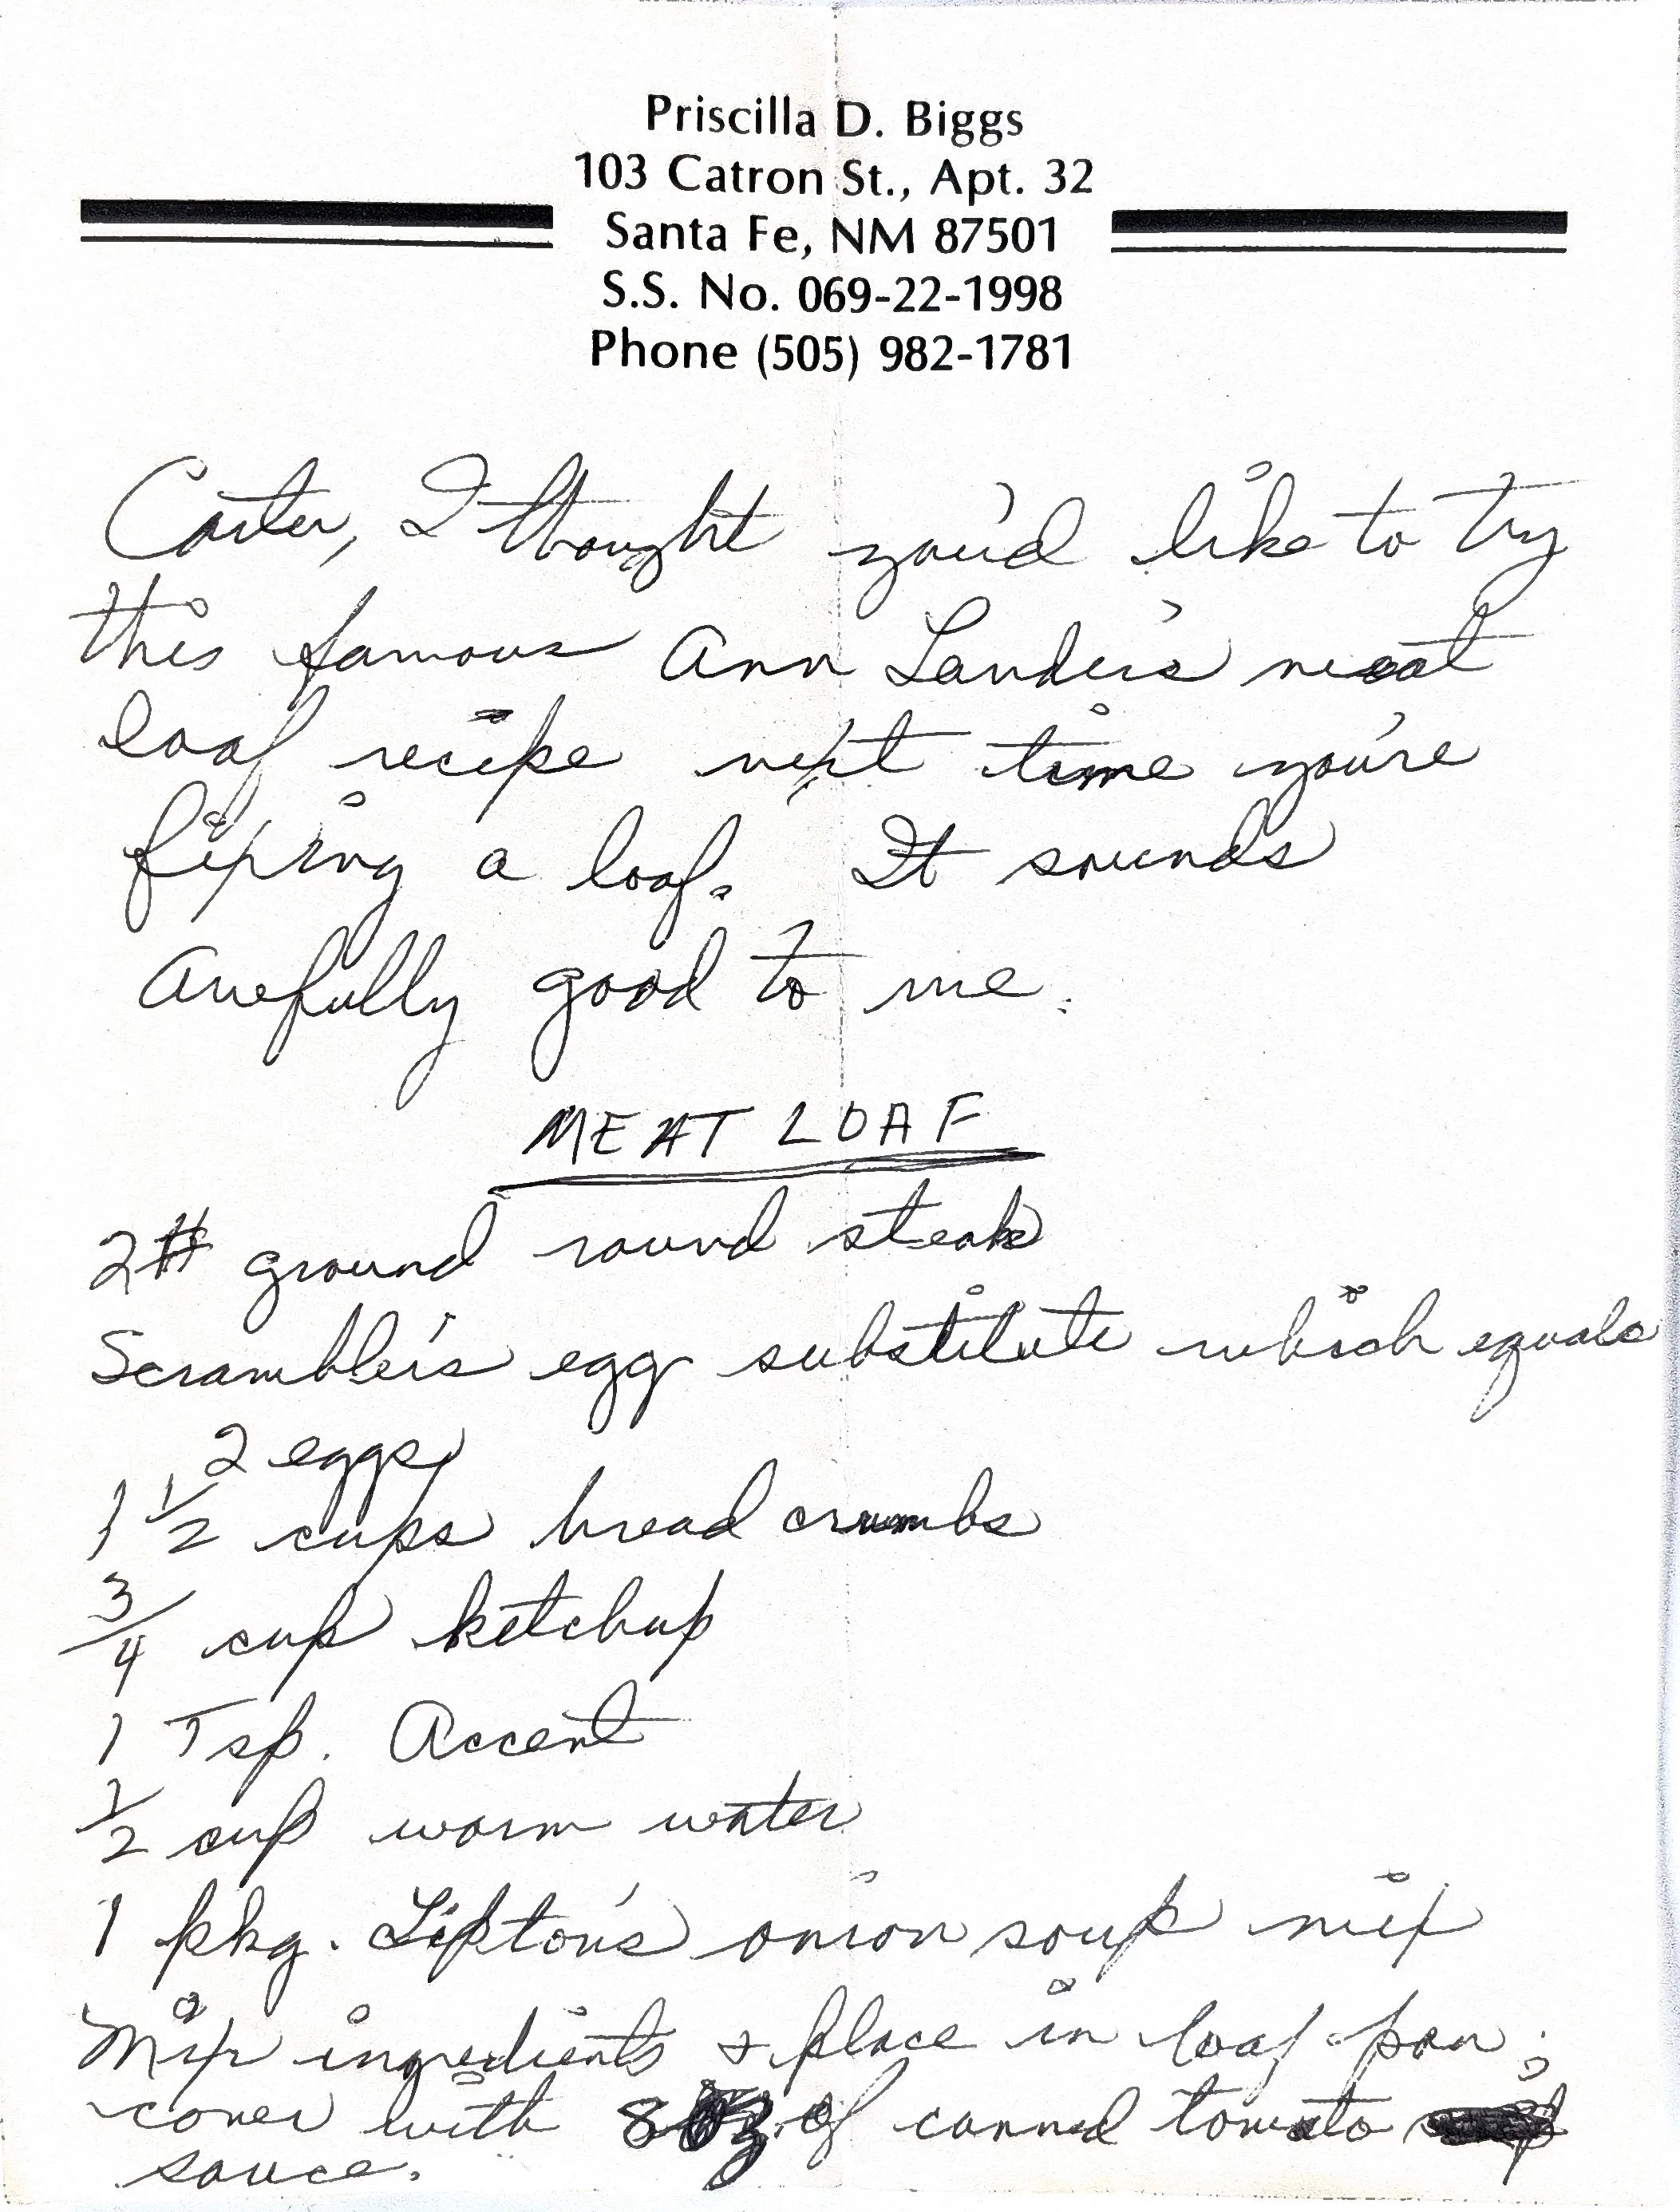 Priscilla D. Biggs
103 Catron St., Apt. 32
Santa Fe, NM 87501
S.S. No. 069-22-1998
Phone (505) 982-1781
Carter, I thought you'd like to try
this famous Ann Lander's meat
loaf recipe next time you're
fixing a loaf. It sounds
Awefully good to me.
MEAT LOAF
2# ground round steak
Scrambler's egg substitute which equals
2 eggs
1 1/2 cups bread crumbs
3/4 cup ketchup
1 Tsp. Accent
1/2 cup warm water
1 pkg. Lipton's onion soup mix
Mix ingredients & place in loaf pan;
cover with 8 oz. of canned tomato
sauce.